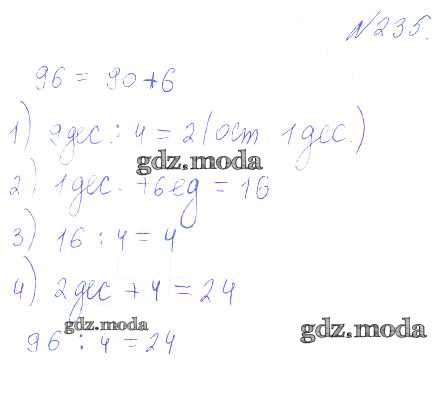 №235.
96 = 90 + 6
1) 9дес. : 4 = 2 (ост 1дес.)
gdz.moda
2) 1дес. + 6ед = 16
3) 16 : 4 = 4
4) 2дес + 4 = 24
gdz.moda
96 : 4 = 24
gdz.moda